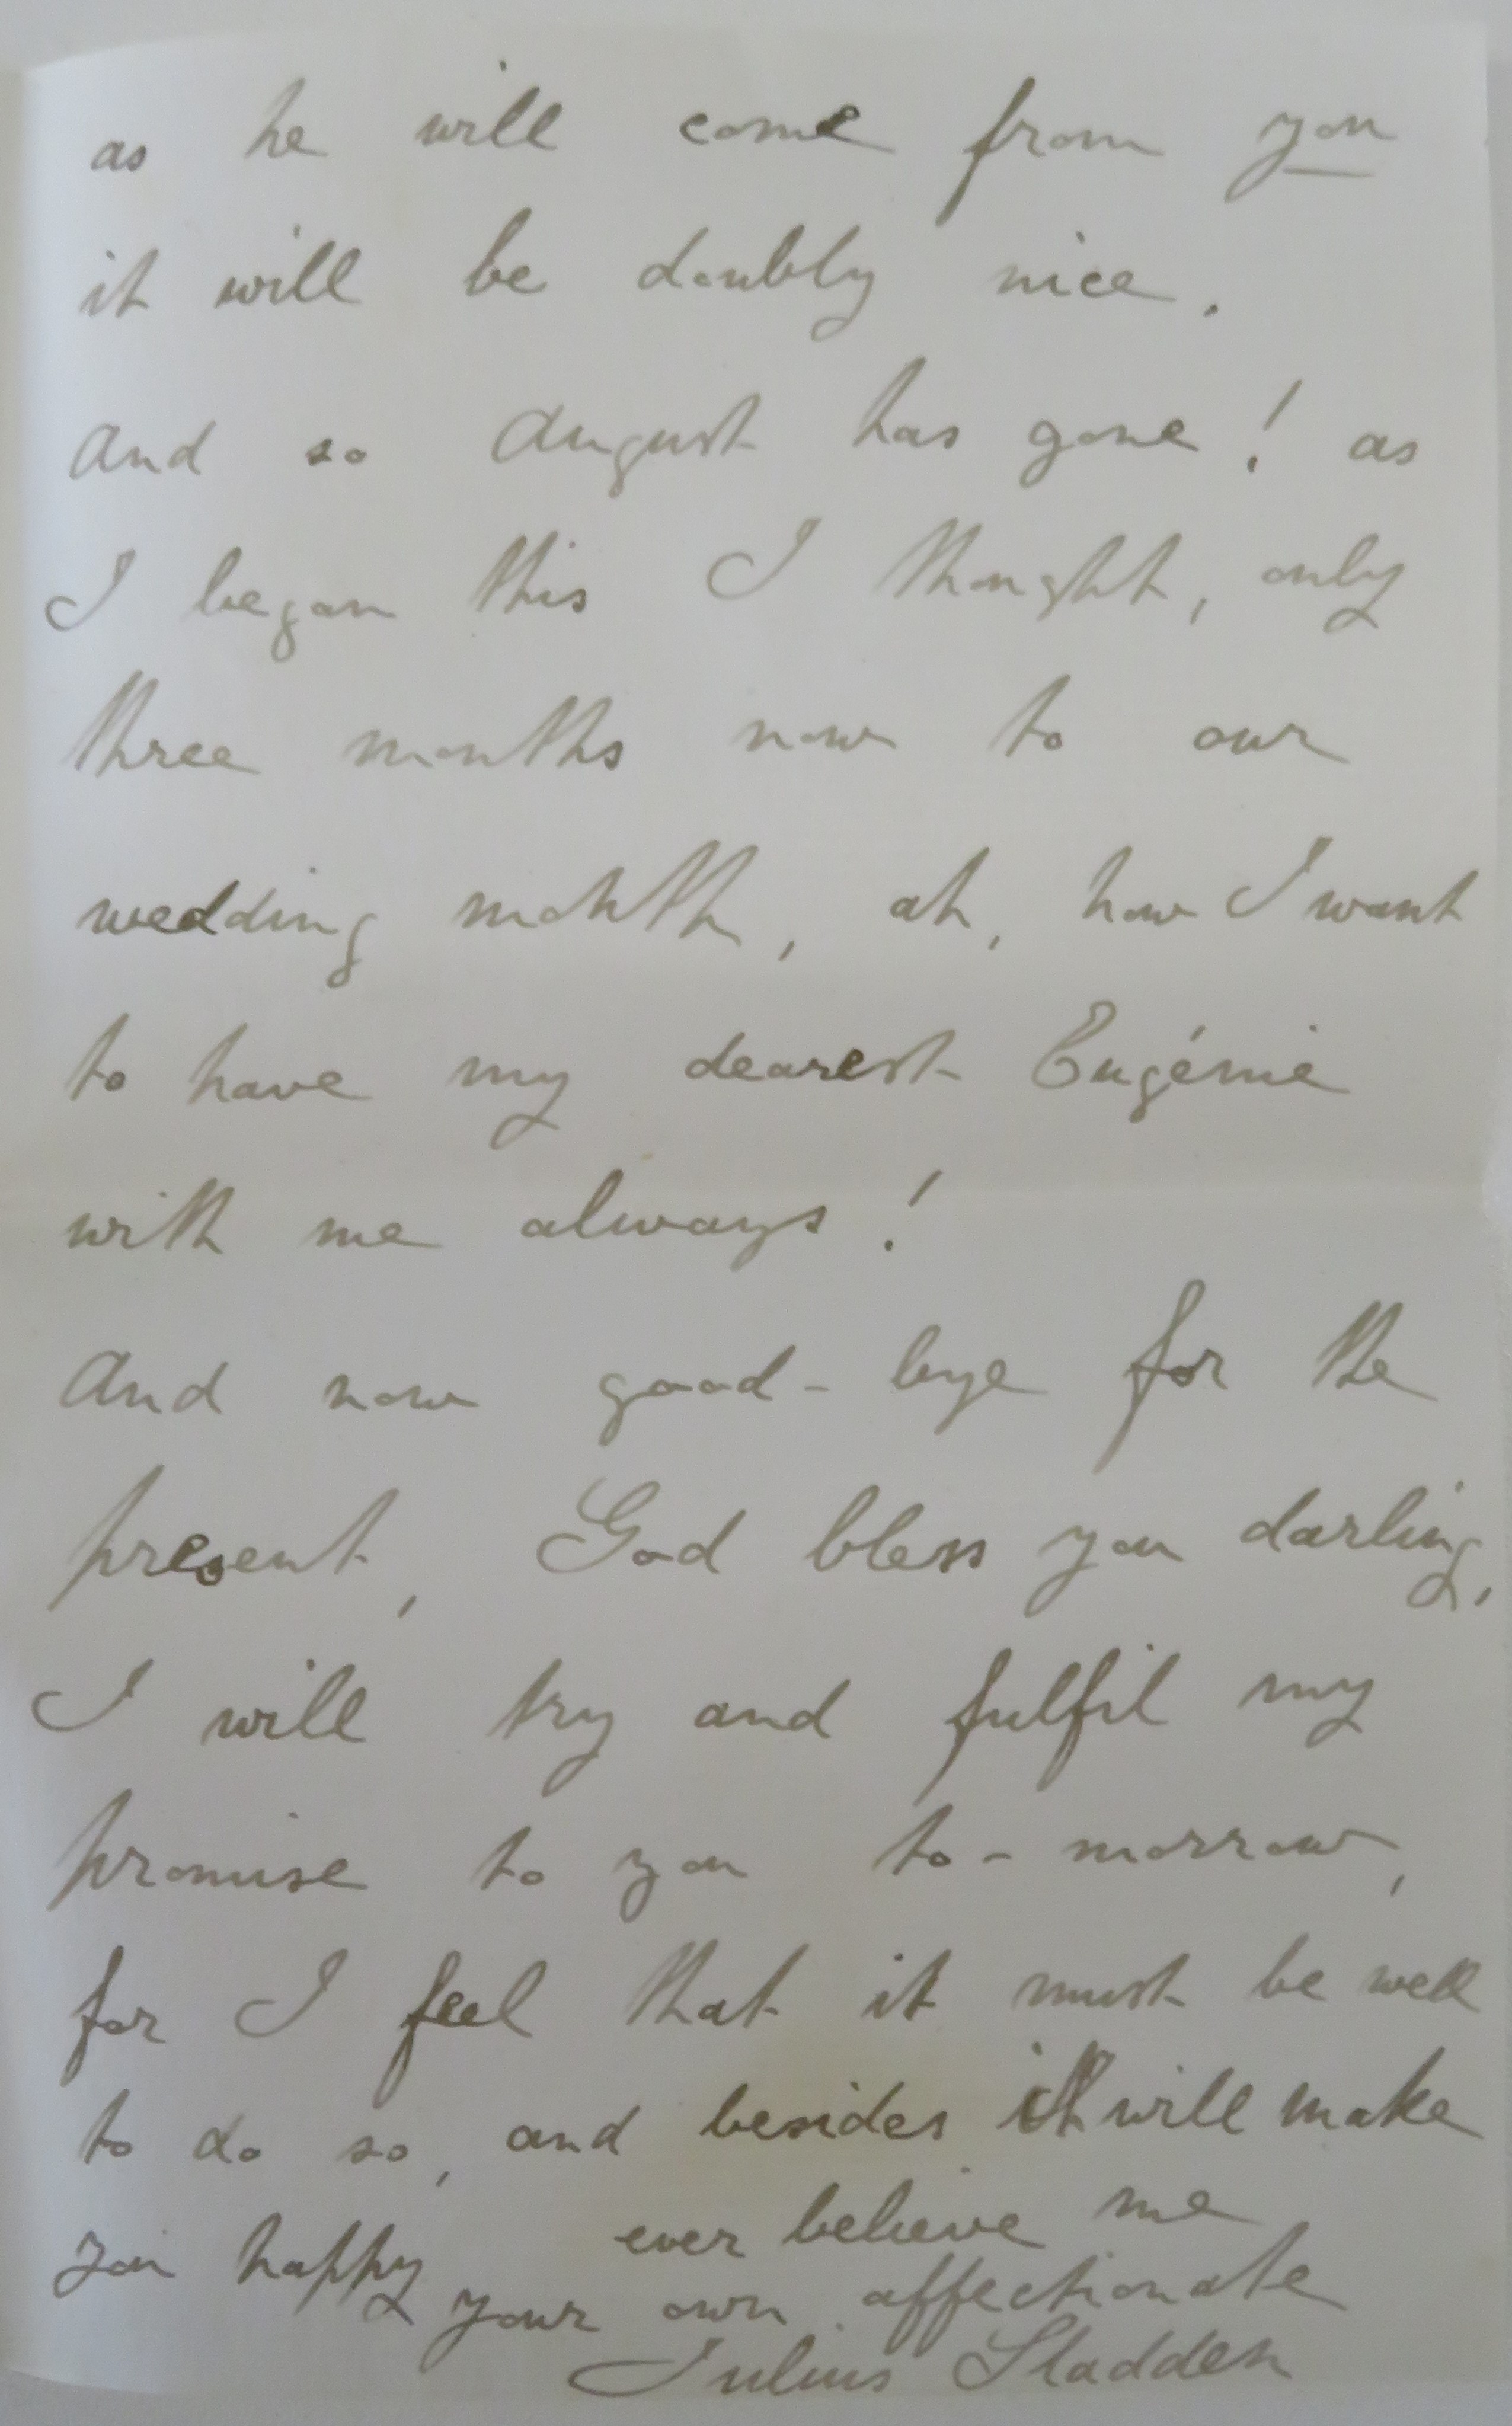 as he will come from you
it will be doubly nice.
And so August has gone! as
I began this I thought, only
three months now to our
wedding month, ah, how I want
to have my dearest Eugénie
with me always!
And now good-bye for the
present, God bless you darling,
I will try and fulfil my
promise to you to-morrow,
for I feel that it must be well
to do so, and besides it will make
you happy ever believe me
your own affectionate
Julius Sladden